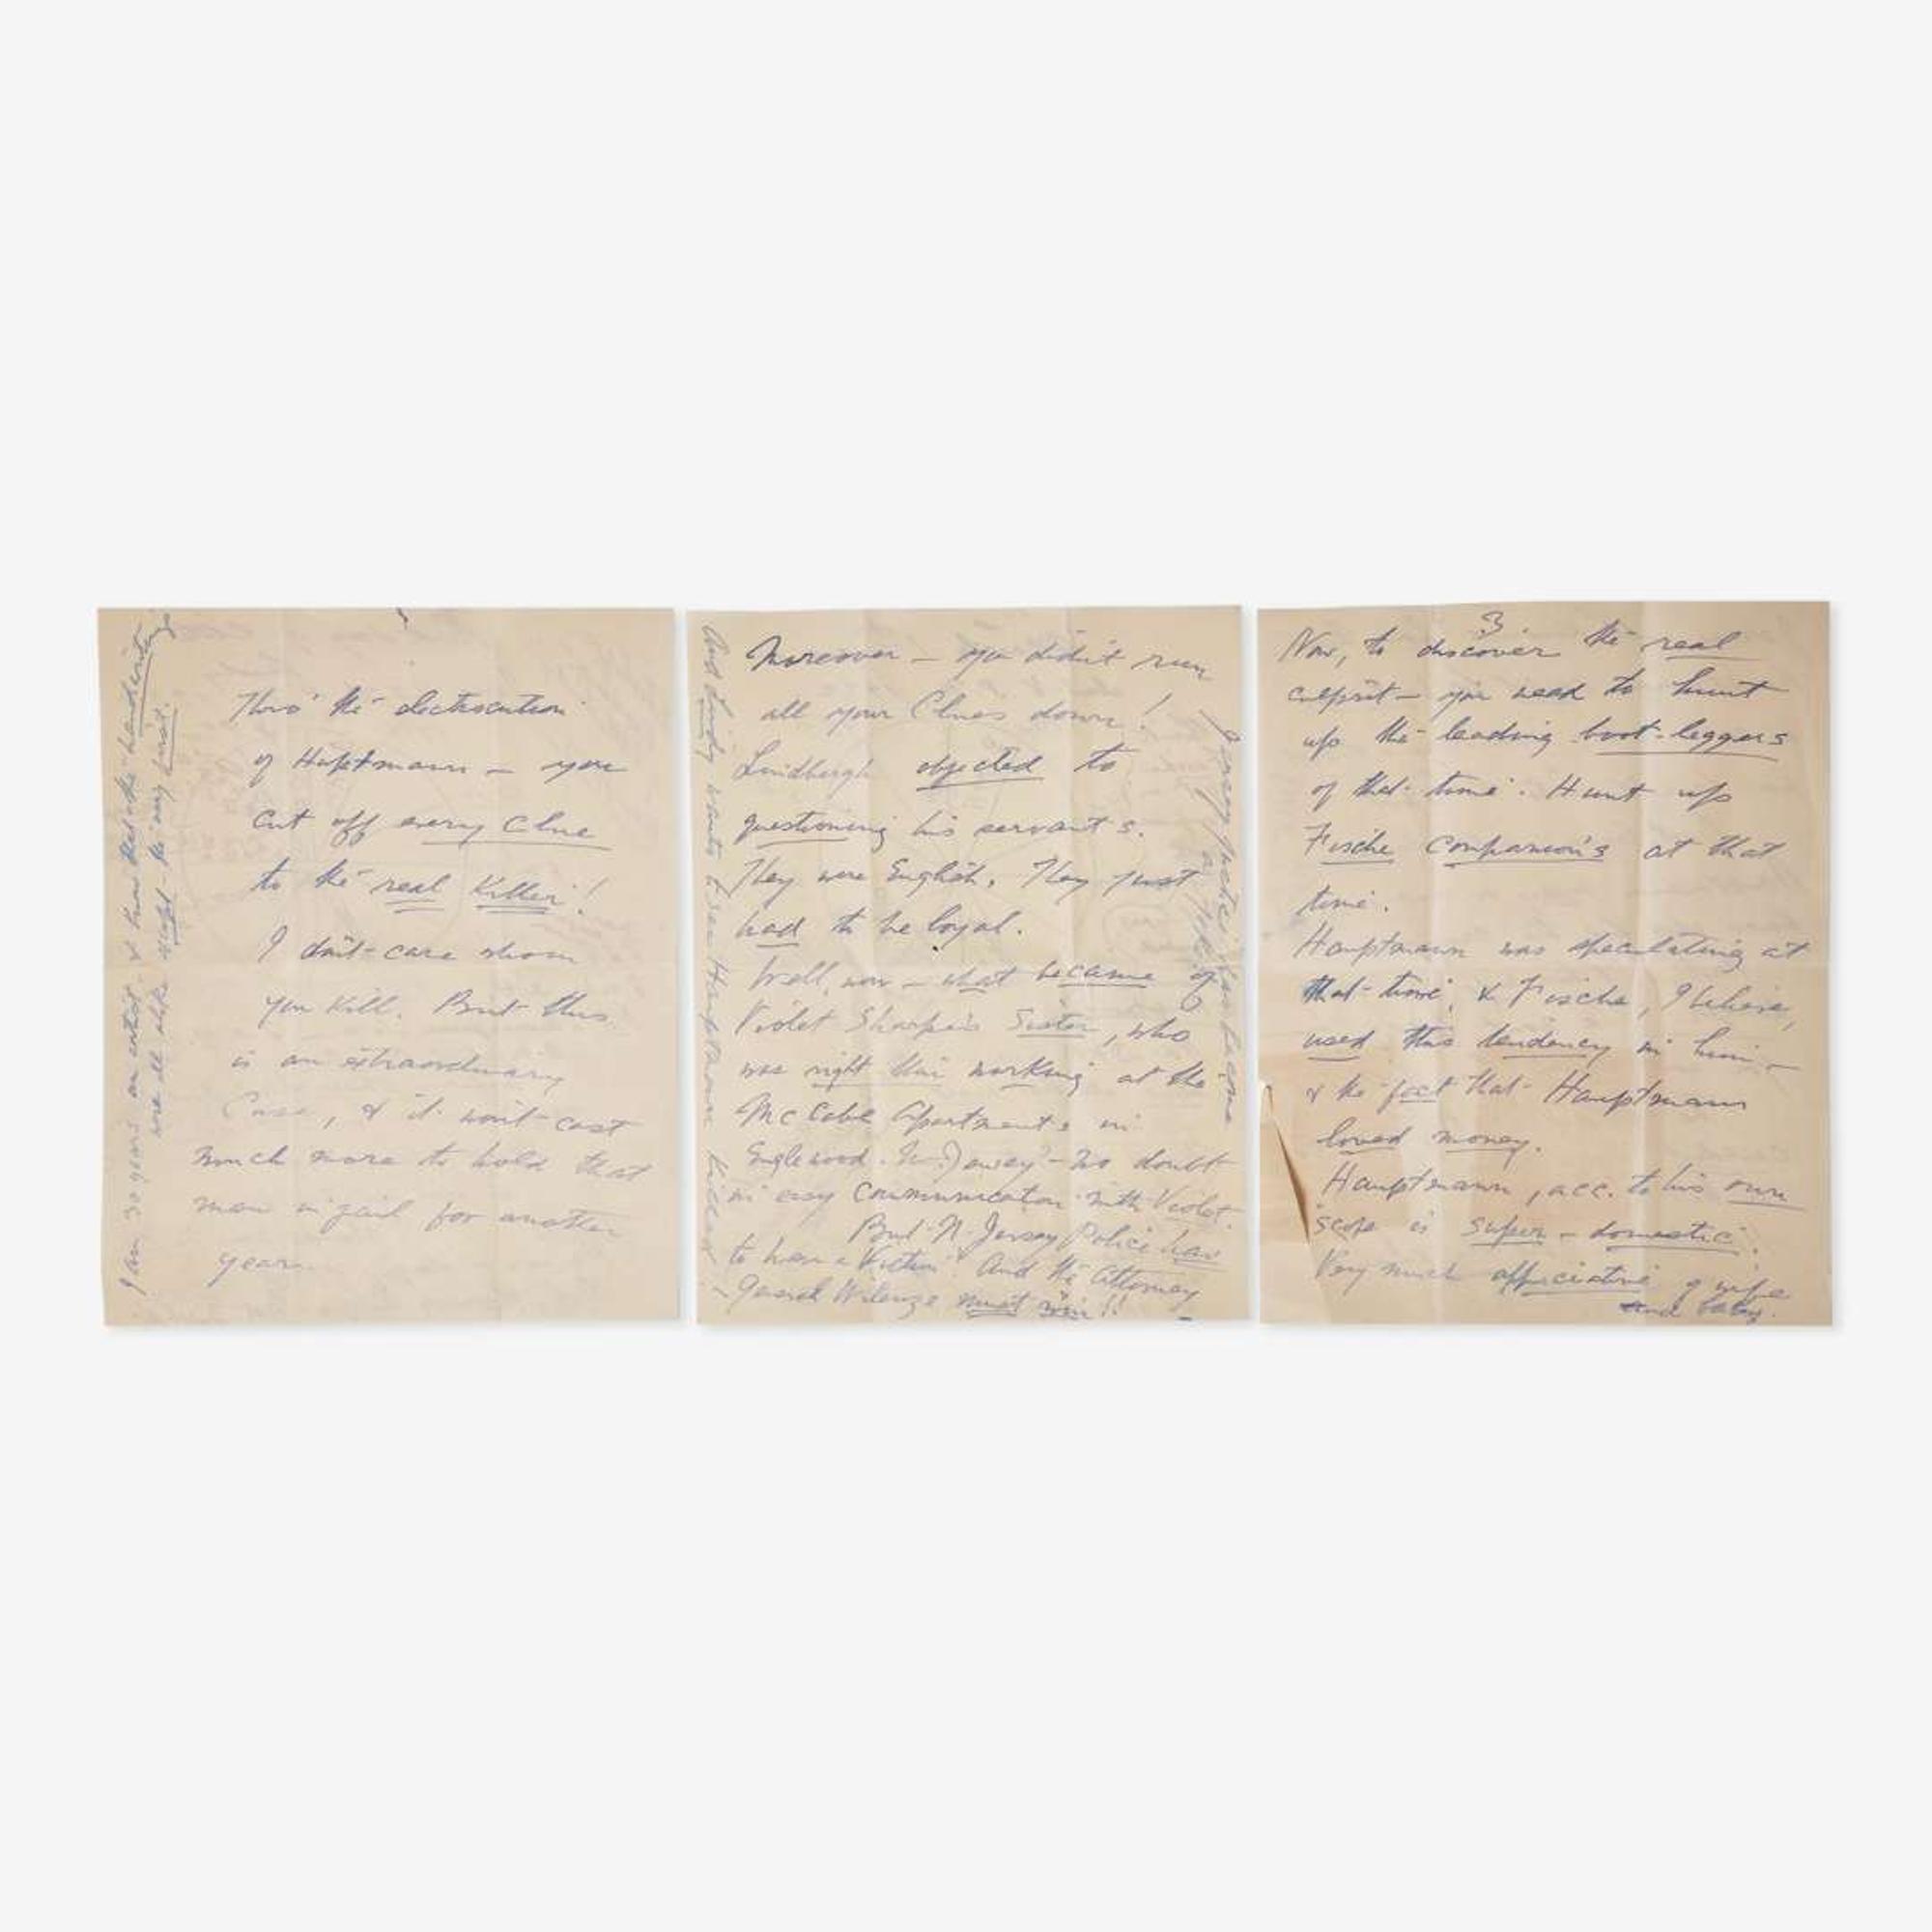 Thro' the electrocution
of Hauptmann — you
cut off every clue
to the real Killer!
I don't care whom
you Kill. But this
is an extraordinary
Case, & it won't cost
much more to hold that
man in jail for another
year
I am 30 years an artist & know that the handwriting
were all alike
Moreover — you didn't run
all your Clues down!
Lindbergh objected to
questioning his servants.
They were English. They just
had to be loyal.
Well, now — what became of
Violet Sharpe's Sister, who
was right then working at the
McCabe Apartments in
Englewood. N. Jersey — no doubt
in easy communication with Violet.
But N. Jersey Police have
to have a Victim. And the Attorney
General Wilenze must win!!
And Lindy wants to see Hauptmann Killed!
Jersey justice has become
a Joke
3
Now, to discover the real
culprit — you need to hunt
up the leading boot-leggers
of that time. Hunt up
Fische Companion's at that
time.
Hauptmann was speculating at
that time, & Fische, I believe,
used this tendency in him —
& the fact that Hauptmann
loved money.
Hauptmann, acc. to his own
scope is super-domestic.
Very much appreciative of wife
and baby.